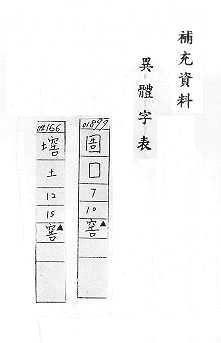 補充資料
異體字表
01899
囼
囗
7
10
窖▲
02166
𡏘
土
12
15
窖▲